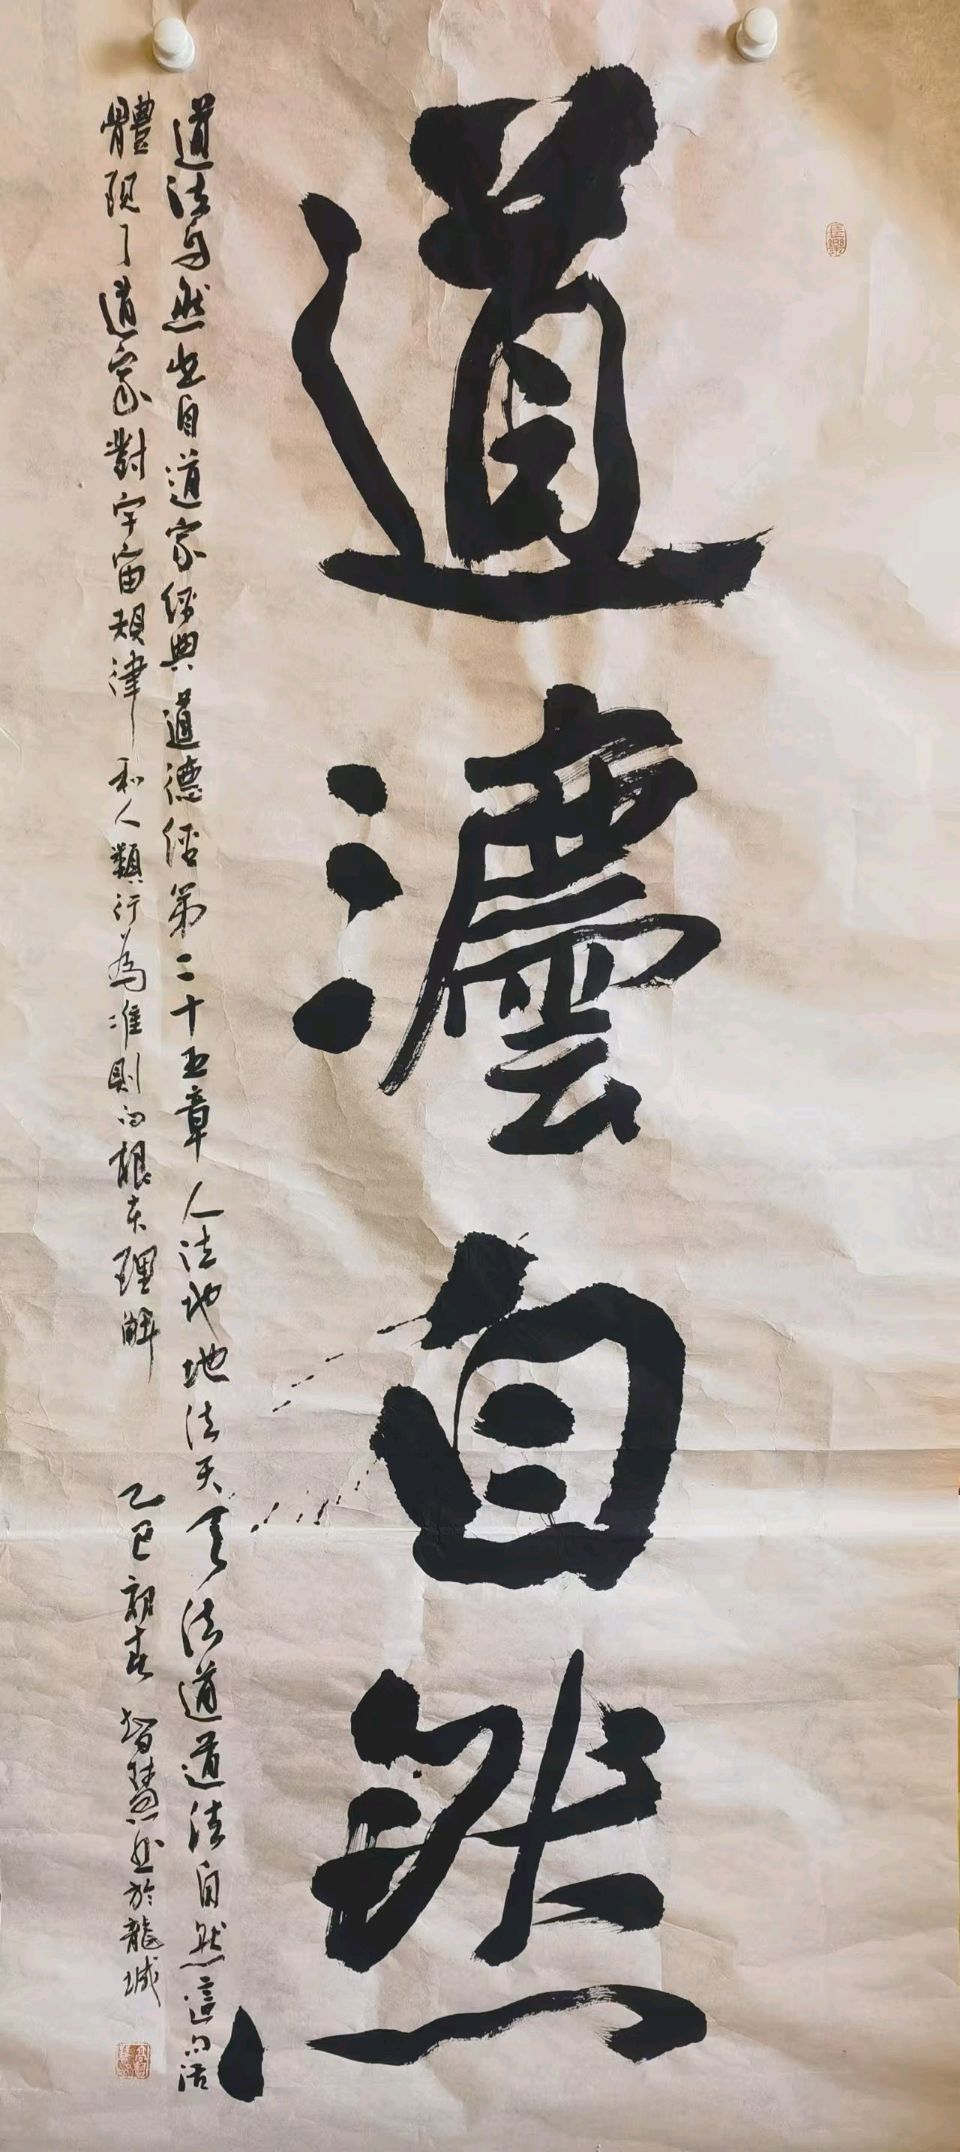 道灋自然
道法自然出自道家經典道德經第二十五章人法地地法天天法道道法自然這句話
體現了道家對宇宙規律和人類行為准則的根本理解
乙巳初春智慧書於龍城
長樂